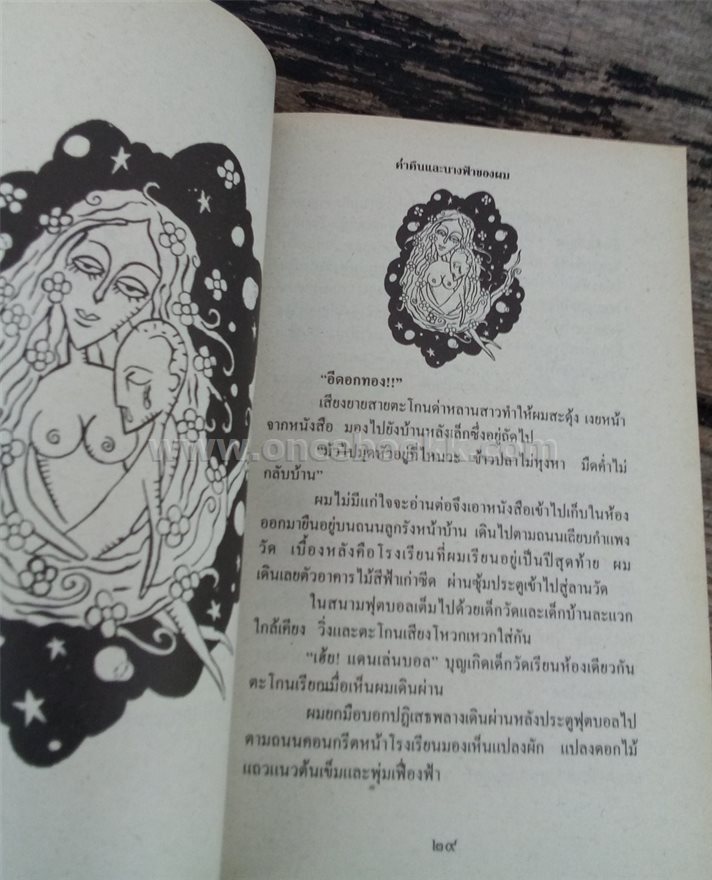 ค่ำคืนและนางฟ้าของผม
"อีดอกทอง!!"
เสียงยายสายตะโกนด่าหลานสาวทำให้ผมสะดุ้ง เงยหน้า
จากหนังสือ มองไปยังบ้านหลังเล็กซึ่งอยู่ถัดไป
อยู่ที่ไหนวะ ข้าวปลาไม่หุงหา มืดค่ำไม่
กลับบ้าน"
ผมไม่มีแก่ใจจะอ่านต่อจึงเอาหนังสือเข้าไปเก็บในห้อง
ออกมายืนอยู่บนถนนลูกรังหน้าบ้าน เดินไปตามถนนเลียบกำแพง
วัด เบื้องหลังคือโรงเรียนที่ผมเรียนอยู่เป็นปีสุดท้าย ผม
เดินเลยตัวอาคารไม้สีฟ้าเก่าซีด ผ่านซุ้มประตูเข้าไปสู่ลานวัด
ในสนามฟุตบอลเต็มไปด้วยเด็กวัดและเด็กบ้านละแวก
ใกล้เคียง วิ่งและตะโกนเสียงโหวกเหวกใส่กัน
"เฮ้ย! แดนเล่นบอล" บุญเกิดเด็กวัดเรียนห้องเดียวกัน
ตะโกนเรียกเมื่อเห็นผมเดินผ่าน
ผมยกมือบอกปฏิเสธพลางเดินผ่านหลังประตูฟุตบอลไป
ตามถนนคอนกรีตหน้าโรงเรียนมองเห็นแปลงผัก แปลงดอกไม้
แถวแนวต้นเข็มและพุ่มเฟื่องฟ้า
๒๙